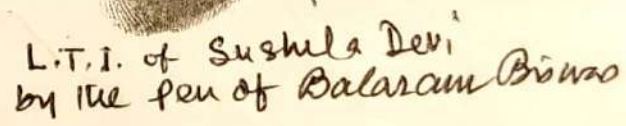 L.T.I. of Sushila Devi
by the Pen of Balaram Biswas